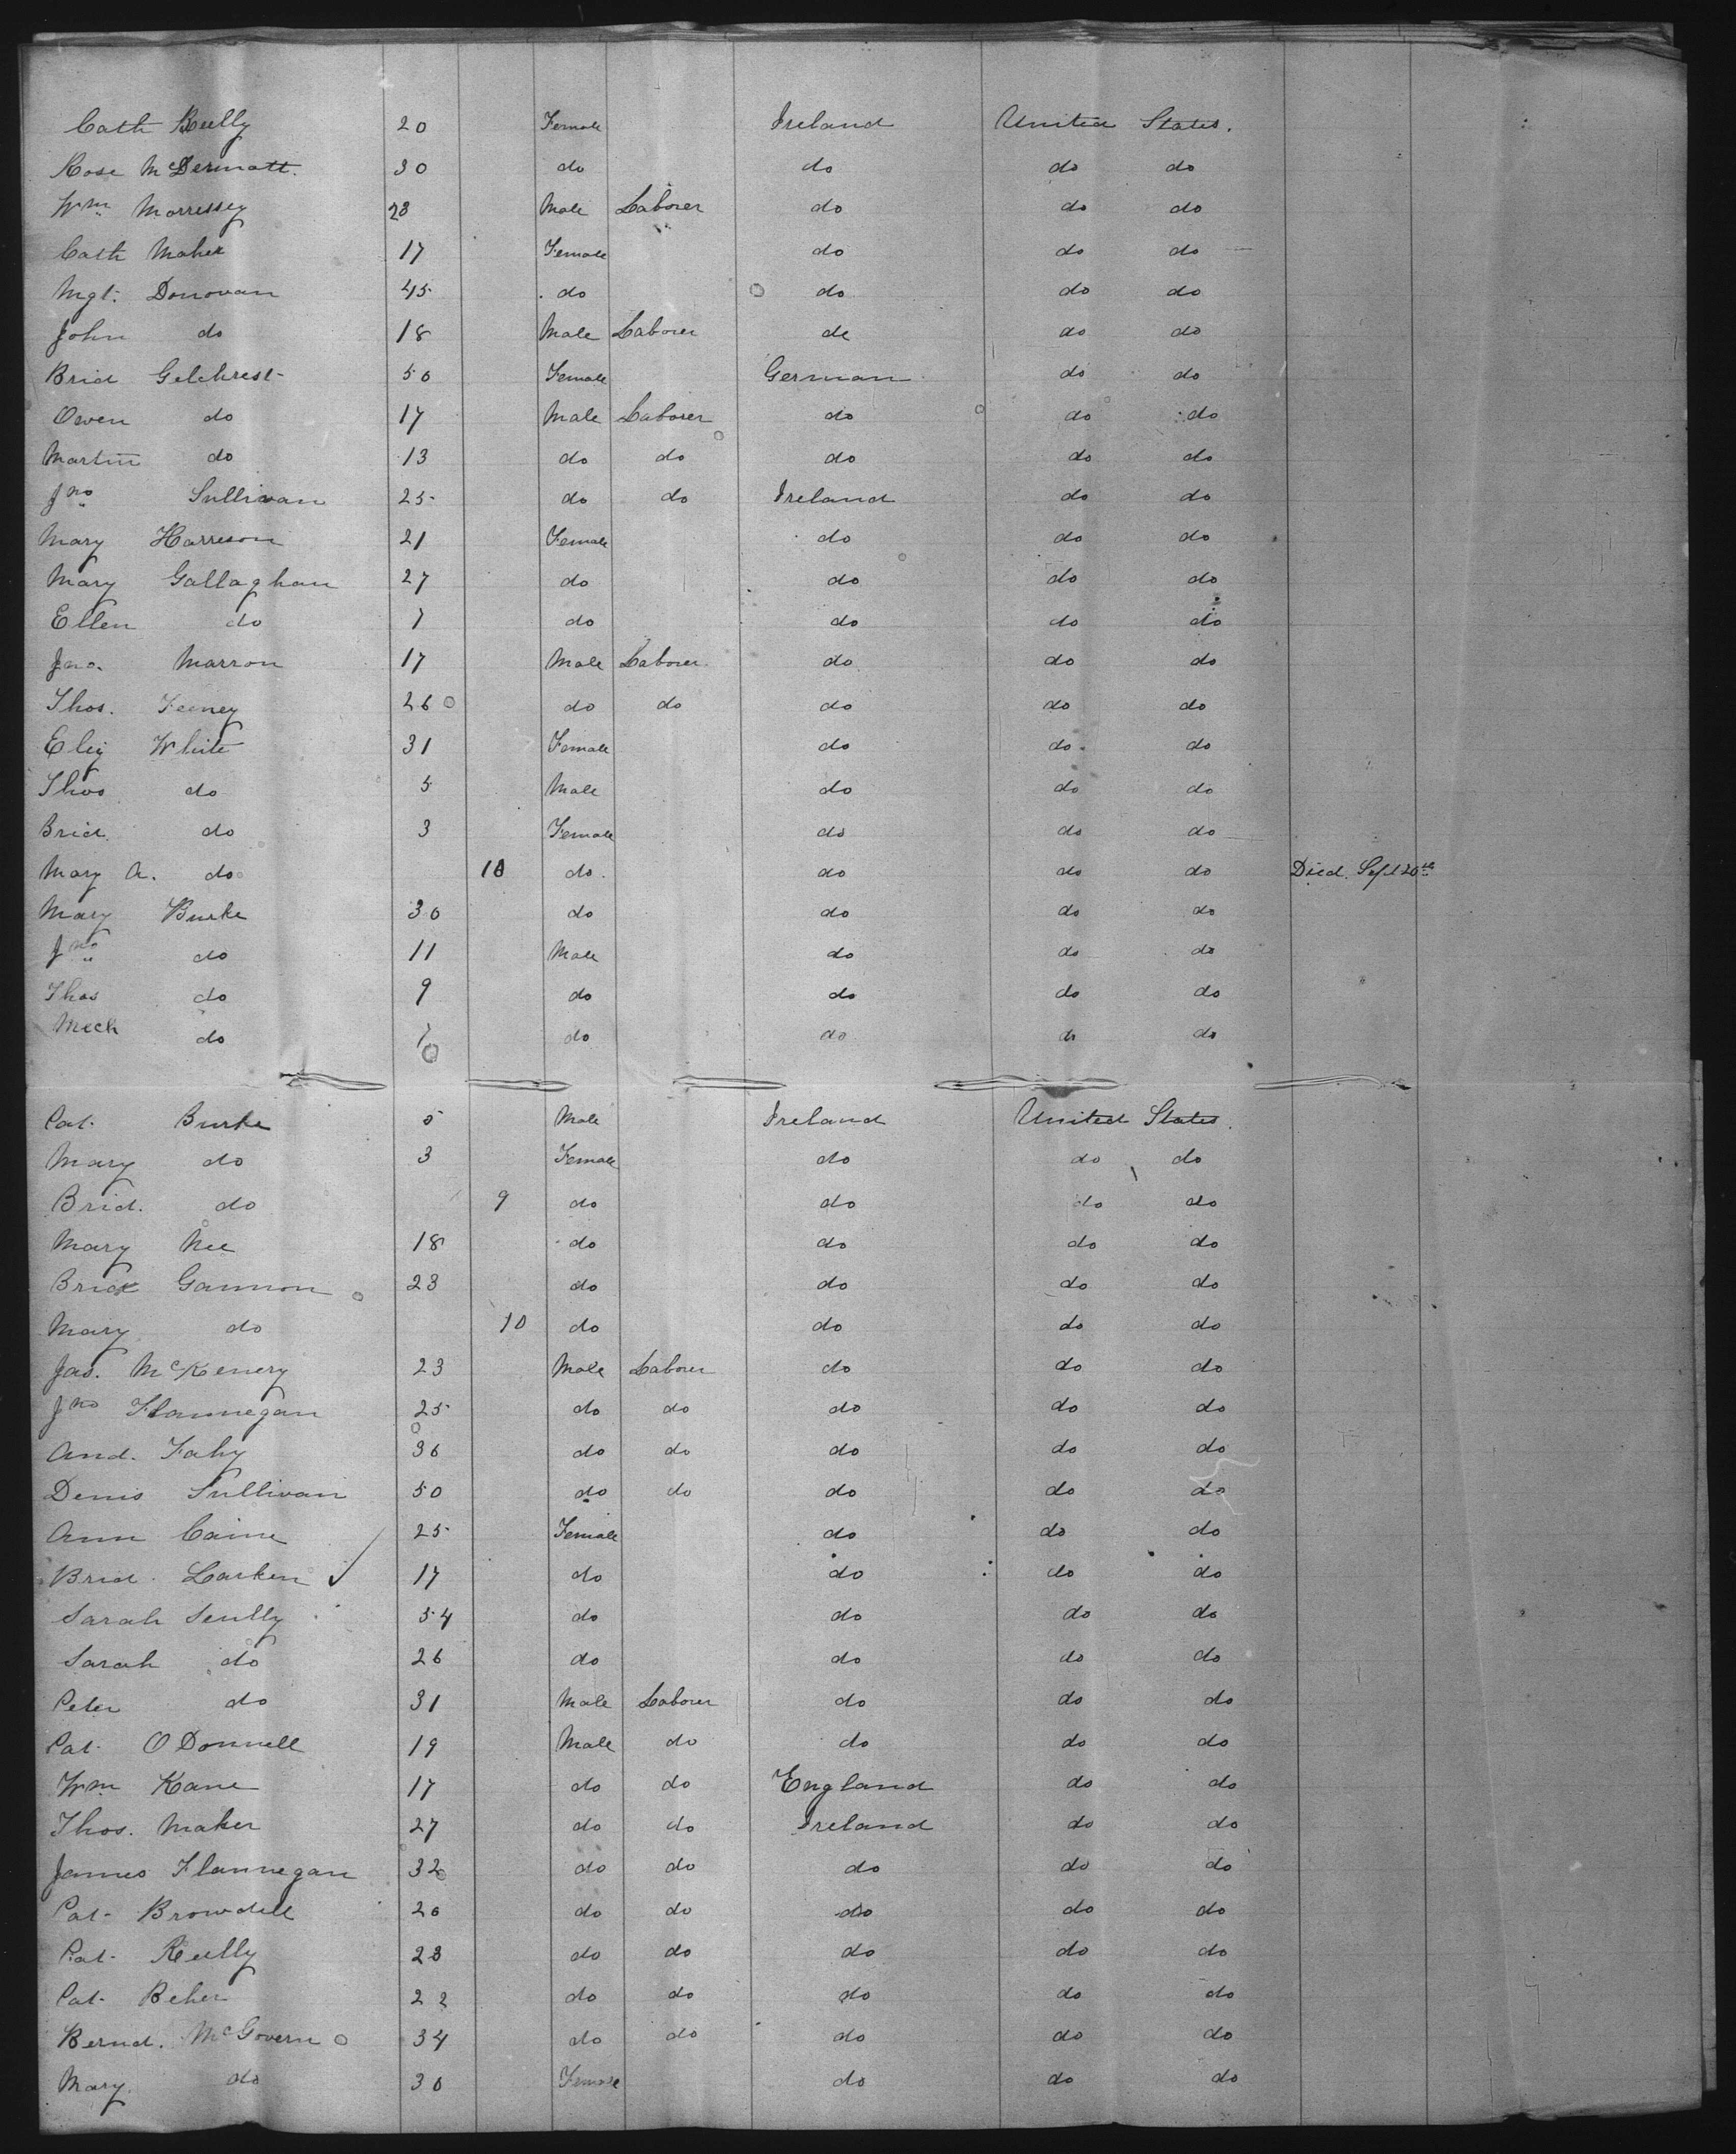 Cath Reilly 20 Female Ireland United States.
Rose McDermott. 30 do do do do
Wm Morressey 23 Male Laborer do do do
Cath Maher 17 Female do do do
Mgt. Donovan 45 do do do do
John do 18 Male Laborer do do do
Brid Gelchrest 50 Female German do do
Owen do 17 Male Laborer do do do
Martin do 13 do do do do do
Jno Sullivan 25 do do Ireland do do
Mary Harreson 21 Female do do do
Mary Gallaghan 27 do do do do
Ellen do 7 do do do do
Jno. Marron 17 Male Laborer do do do
Thos. Feeney 26 do do do do do
Eliz White 31 Female do do do
Thos do 5 Male do do do
Brid. do 3 Female do do do
Mary A. do 10 do. do do do Died. Sept 20th
Mary Burke 30 do do do do
Jno do 11 Male do do do
Thos do 9 do do do do
Mich do 7 do do do do
Pat. Burke 5 Male Ireland United States.
Mary do 3 Female do do do
Brid. do 9 do do do do
Mary Nee 18 do do do do
Brid Gannon 23 do do do do
Mary do 10 do do do do
Jas. McKenery 23 Male Laborer do do do
Jno Flannegan 25 do do do do do
And. Fahy 36 do do do do do
Denis Sullivan 50 do do do do do
Ann Caine 25 Female do do do
Brid. Larken 17 do do do do
Sarah Scully 54 do do do do
Sarah do 26 do do do do
Peter do 31 Male Laborer do do do
Pat. O Donnell 19 Male do do do do
Wm Kane 17 do do England do do
Thos. Maher 27 do do Ireland do do
James Flannegan 32 do do do do do
Pat. Browdell 20 do do do do do
Pat. Reilly 23 do do do do do
Pat. Beher 22 do do do do do
Bernd. McGovern 34 do do do do do
Mary. do 30 Female do do do